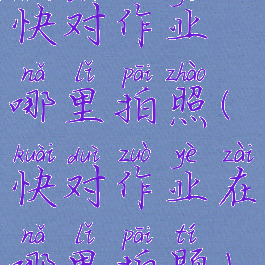 快对作业
nǎ lǐ pāi zhào
哪里拍照(
kuài duì zuò yè zài
快对作业在
nǎ lǐ pāi tí
哪里拍题)